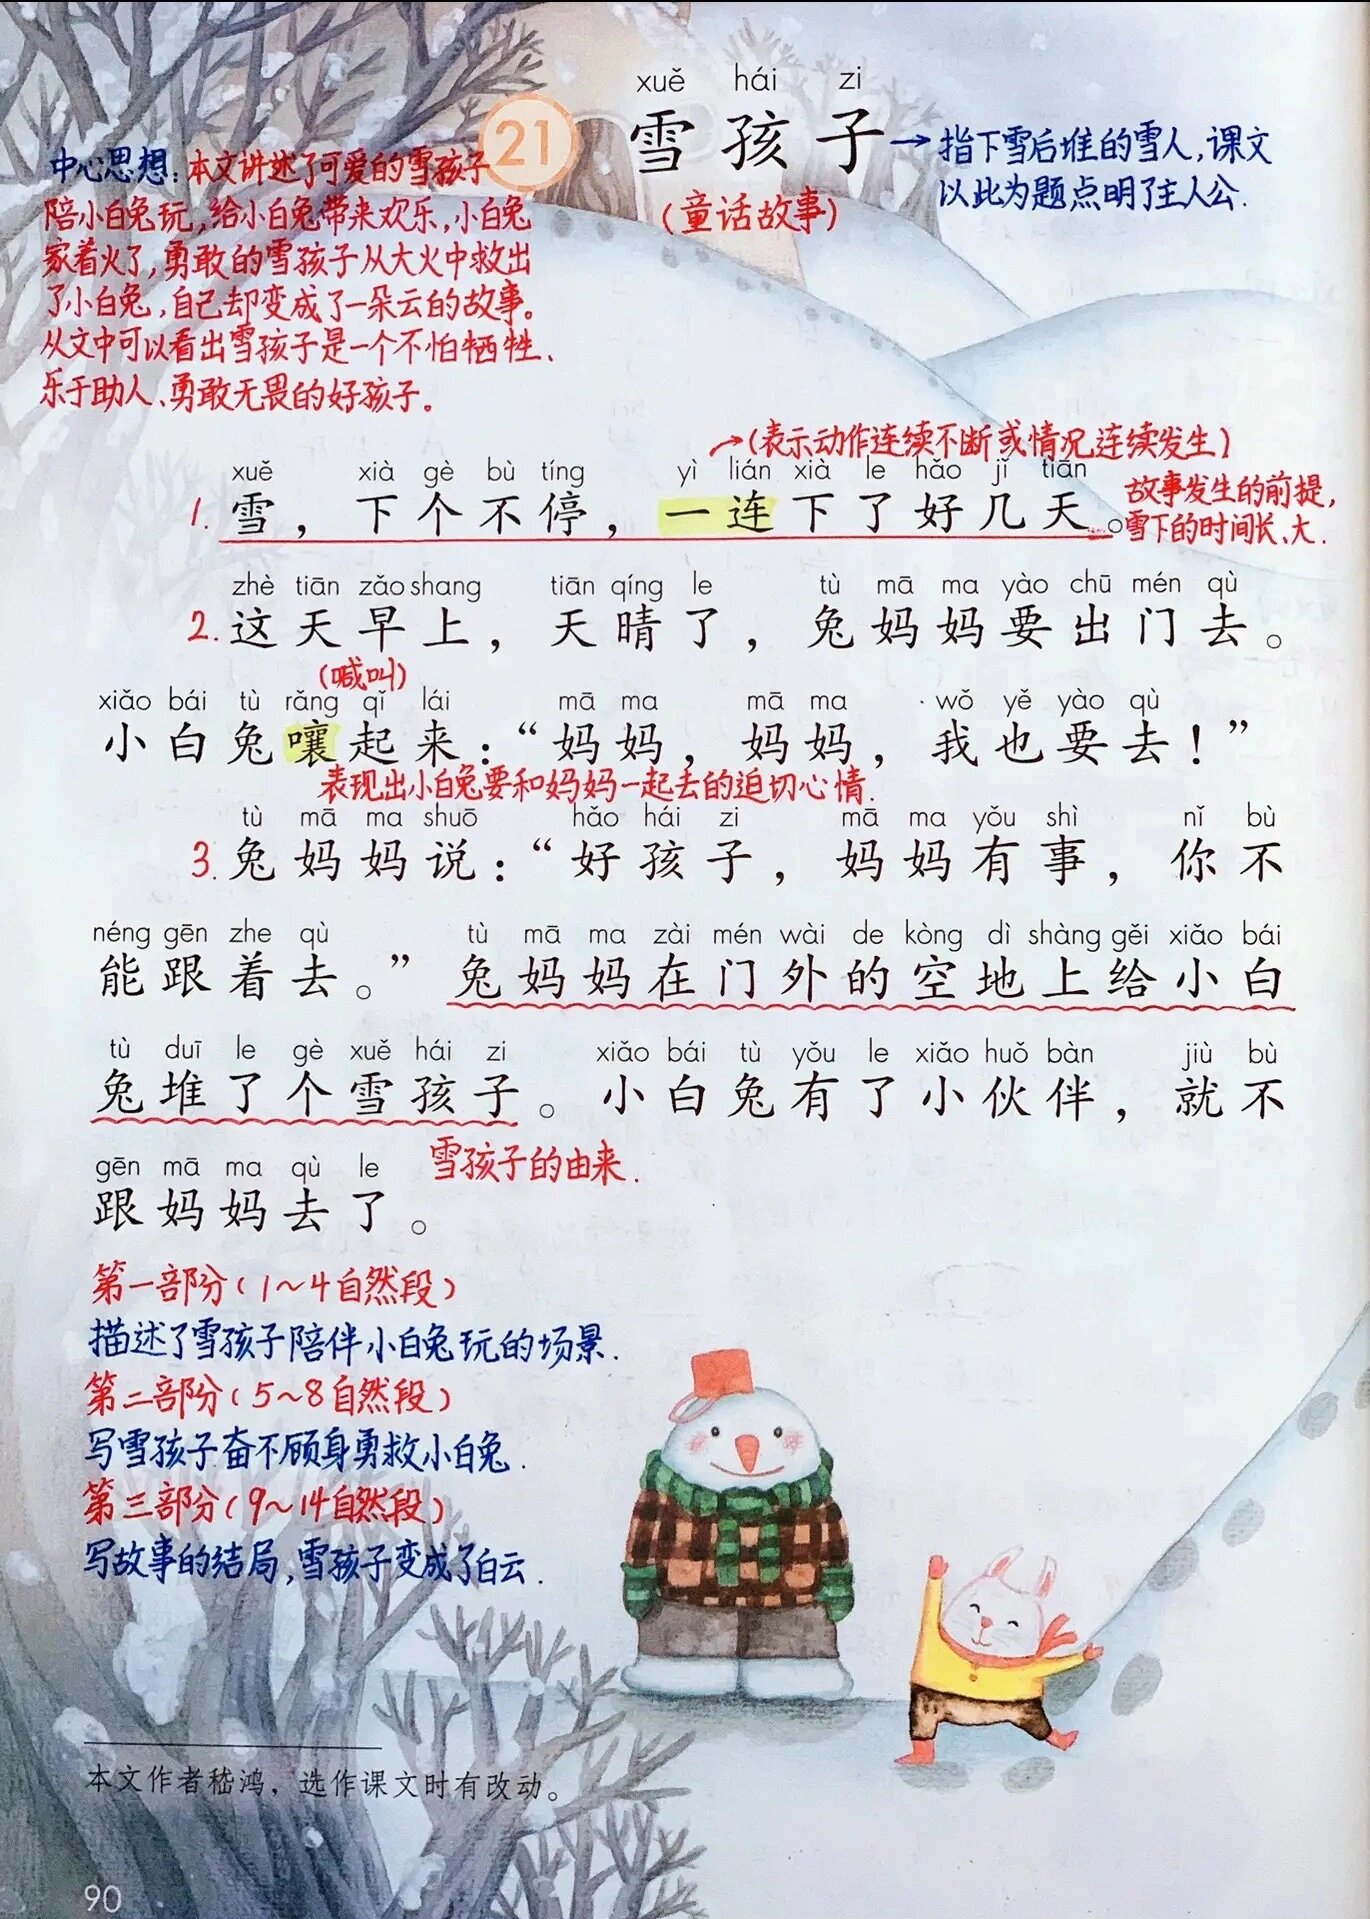 xuě hái zi
21 雪孩子
→指下雪后堆的雪人,课文
以此为题点明了主人公.
(童话故事)
中心思想:本文讲述了可爱的雪孩子
陪小白兔玩,给小白兔带来欢乐,小白兔
家着火了,勇敢的雪孩子从大火中救出
了小白兔,自己却变成了一朵云的故事。
从文中可以看出雪孩子是一个不怕牺牲、
乐于助人、勇敢无畏的好孩子。
→(表示动作连续不断或情况连续发生)
xuě xià gè bù tíng yì lián xià le hǎo jǐ tiān
1. 雪,下个不停,一连下了好几天。
故事发生的前提,
雪下的时间长、大.
zhè tiān zǎo shang tiān qíng le tù mā ma yào chū mén qù
2. 这天早上,天晴了,兔妈妈要出门去。
(喊叫)
xiǎo bái tù rǎng qǐ lái mā ma mā ma wǒ yě yào qù
小白兔嚷起来:“妈妈,妈妈,我也要去!”
表现出小白兔要和妈妈一起去的迫切心情.
tù mā ma shuō hǎo hái zi mā ma yǒu shì nǐ bù
3. 兔妈妈说:“好孩子,妈妈有事,你不
néng gēn zhe qù tù mā ma zài mén wài de kòng dì shàng gěi xiǎo bái
能跟着去。”兔妈妈在门外的空地上给小白
tù duī le gè xuě hái zi xiǎo bái tù yǒu le xiǎo huǒ bàn jiù bù
兔堆了个雪孩子。小白兔有了小伙伴,就不
雪孩子的由来.
gēn mā ma qù le
跟妈妈去了。
第一部分(1~4自然段)
描述了雪孩子陪伴小白兔玩的场景.
第二部分(5~8自然段)
写雪孩子奋不顾身勇救小白兔.
第三部分(9~14自然段)
写故事的结局,雪孩子变成了白云.
本文作者嵇鸿,选作课文时有改动。
90